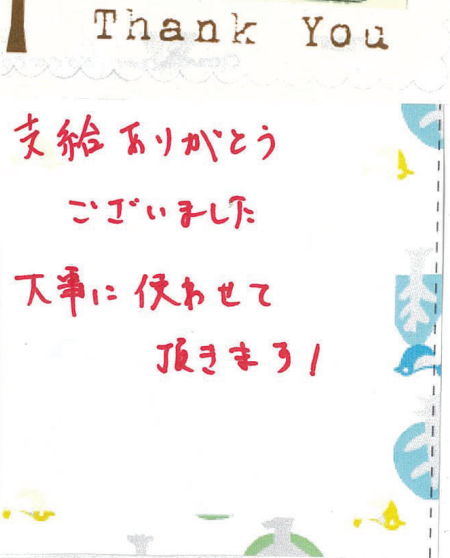 Thank You
支給ありがとう
ございました
大事に使わせて
頂きます!